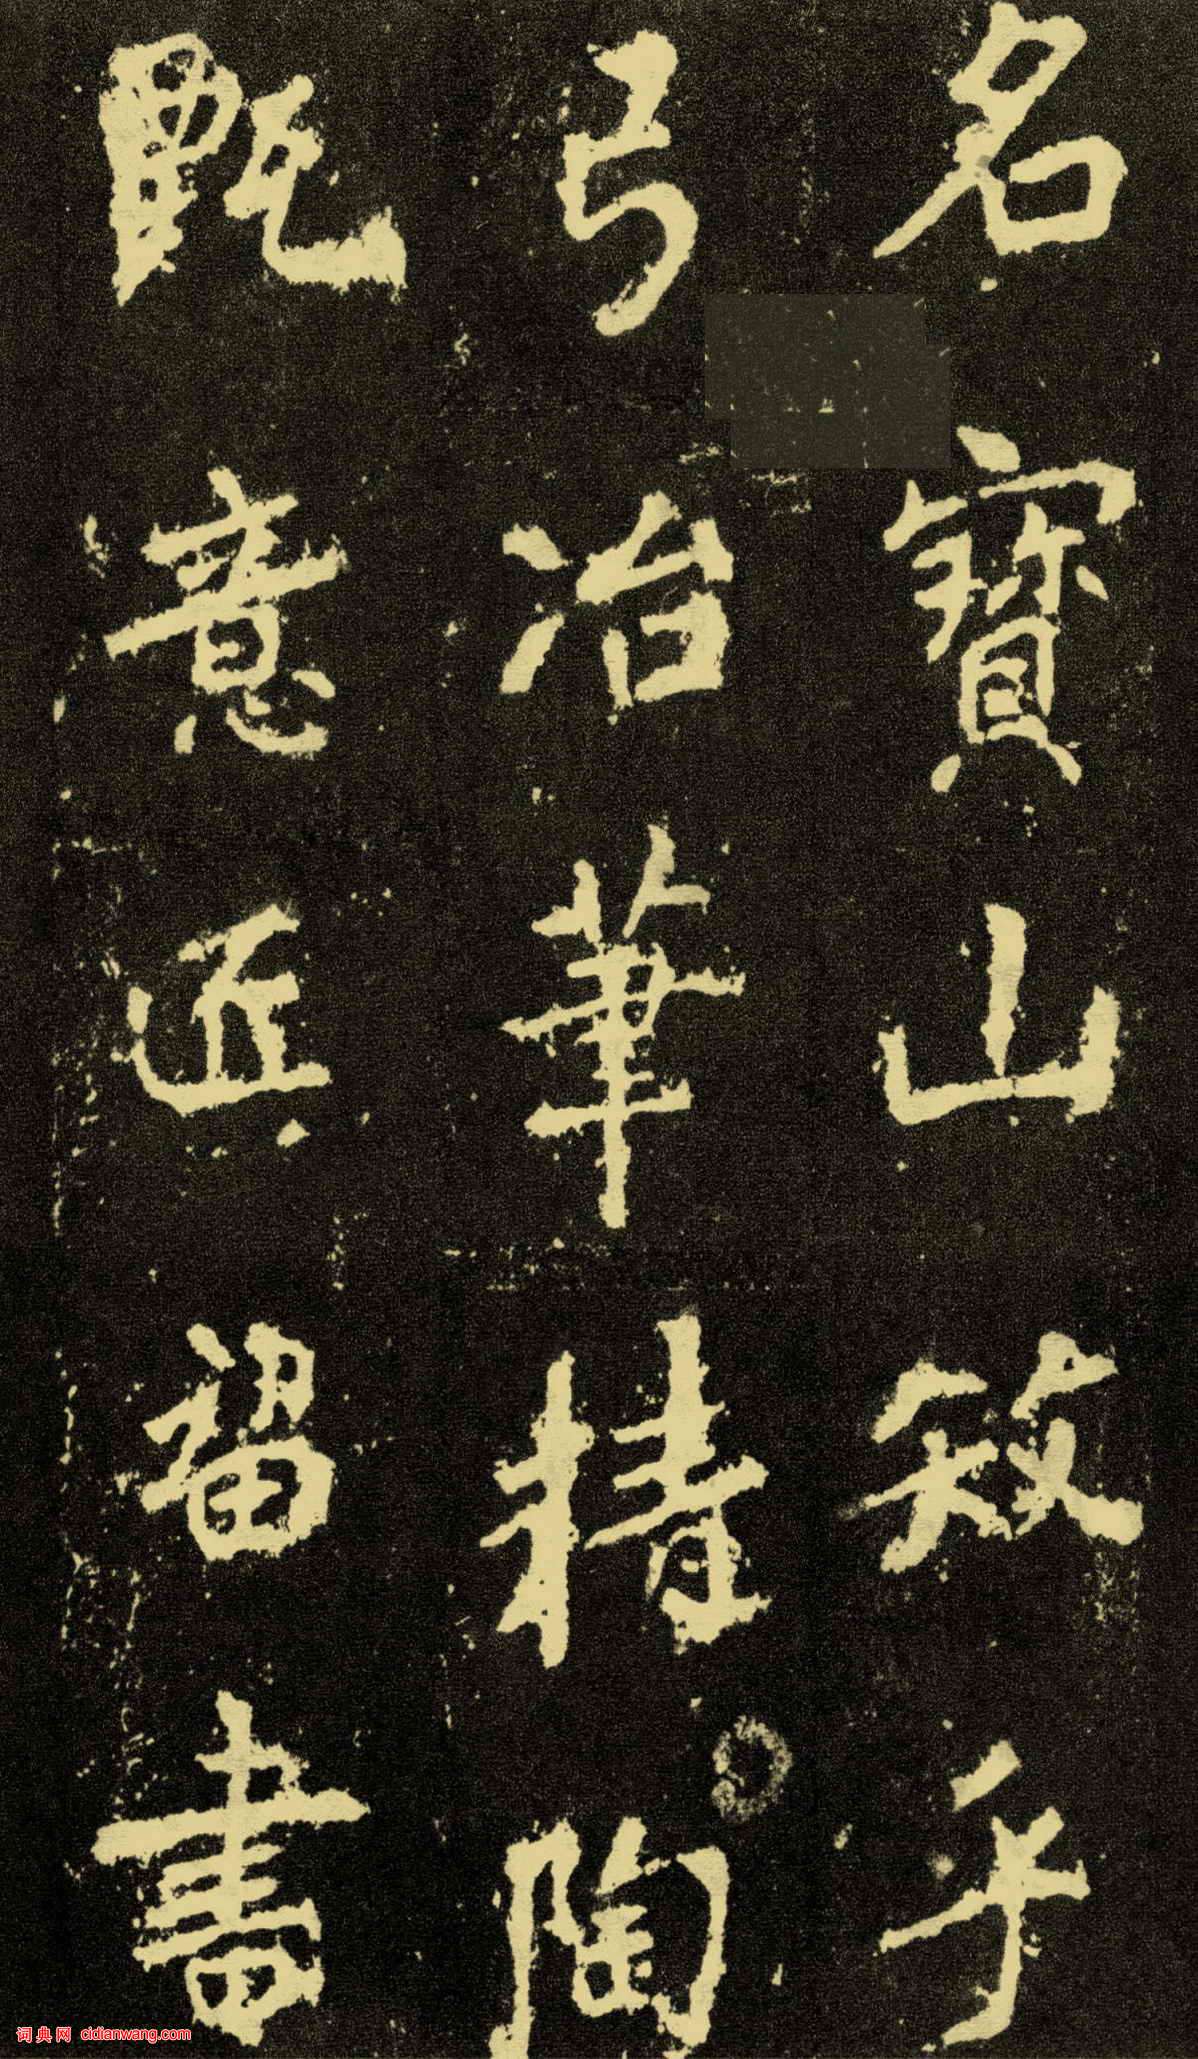 名寶山效乎
弓冶筆精陶
甄意近留書
词典网 cidianwang.com